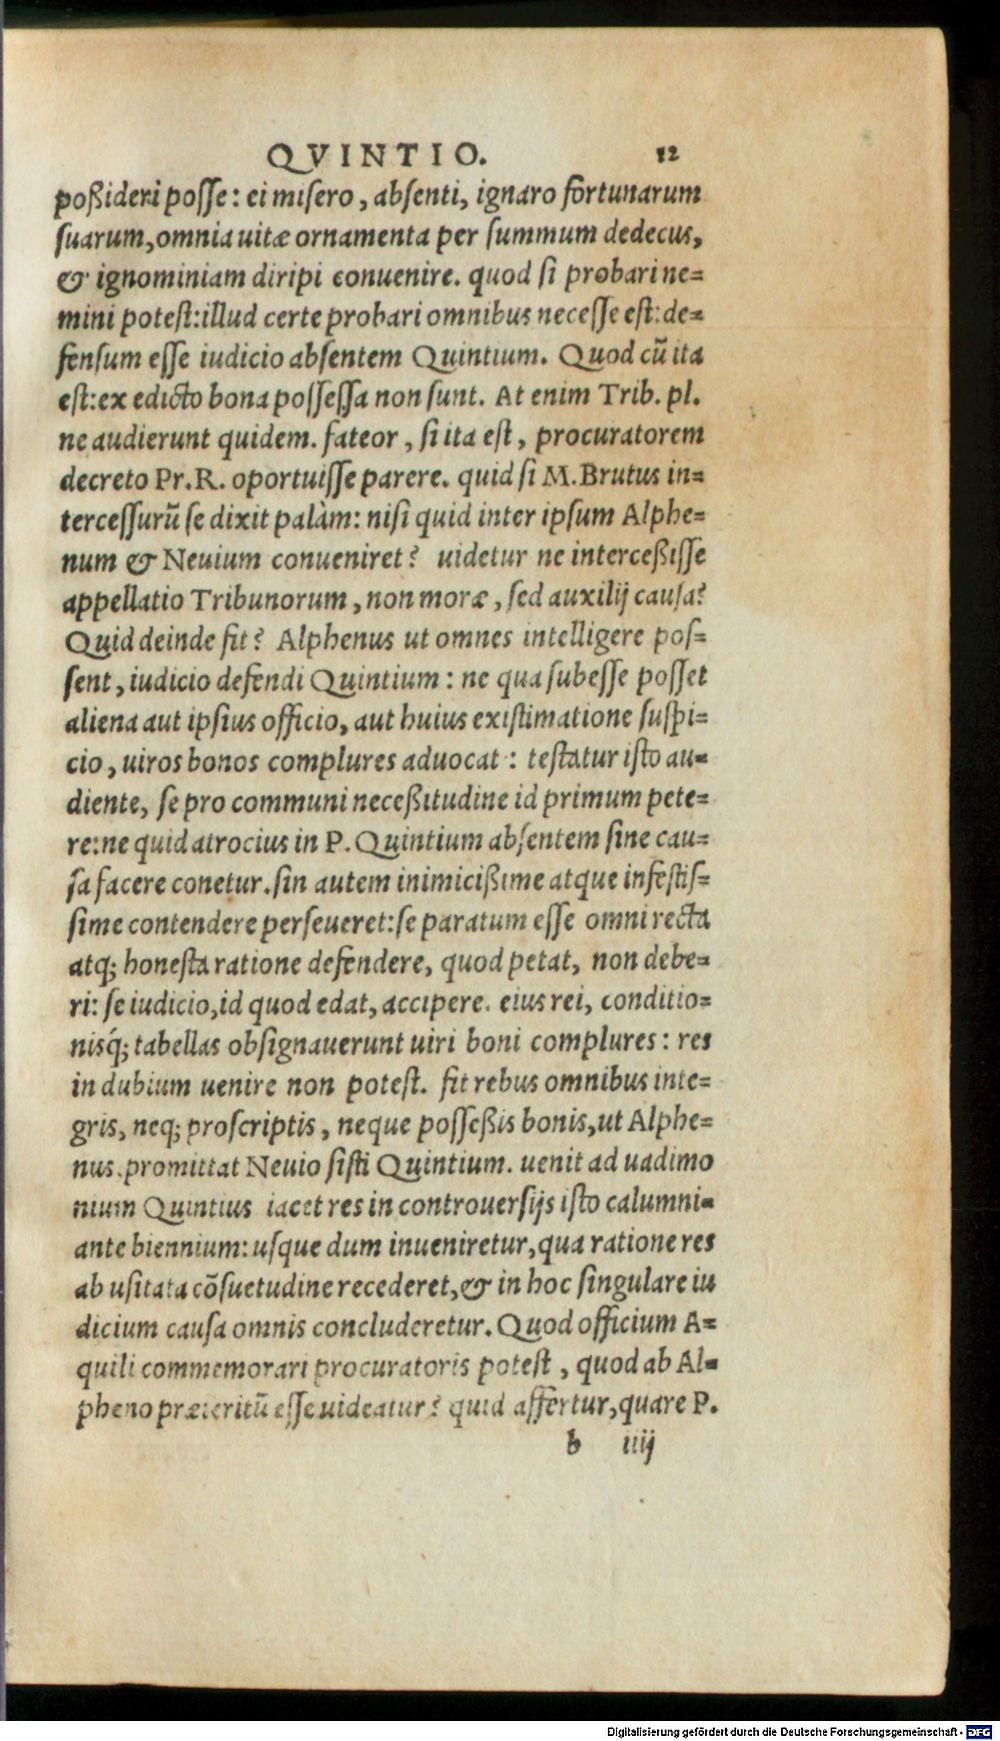 QVINTIO. 12
poßideri posse: ei misero, absenti, ignaro fortunarum
suarum, omnia uitæ ornamenta per summum dedecus,
& ignominiam diripi conuenire. quod si probari ne=
mini potest: illud certe probari omnibus necesse est: de=
fensum esse iudicio absentem Quintium. Quod cũ ita
est: ex edicto bona possessa non sunt. At enim Trib. pl.
ne audierunt quidem. fateor, si ita est, procuratorem
decreto Pr. R. oportuisse parere. quid si M. Brutus in=
tercessurũ se dixit palàm: nisi quid inter ipsum Alphe=
num & Neuium conueniret? uidetur ne interceßisse
appellatio Tribunorum, non moræ, sed auxilij causa?
Quid deinde fit? Alphenus ut omnes intelligere pos=
sent, iudicio defendi Quintium: ne qua subesse posset
aliena aut ipsius officio, aut huius existimatione suspi=
cio, uiros bonos complures aduocat: testatur isto au=
diente, se pro communi neceßitudine id primum pete=
re: ne quid atrocius in P. Quintium absentem sine cau=
sa facere conetur. sin autem inimicißime atque infestis=
sime contendere perseueret: se paratum esse omni recta
atq; honesta ratione defendere, quod petat, non debe=
ri: se iudicio, id quod edat, accipere. eius rei, conditio=
nisq́; tabellas obsignauerunt uiri boni complures: res
in dubium uenire non potest. fit rebus omnibus inte=
gris, neq; proscriptis, neque posseßis bonis, ut Alphe=
nus promittat Neuio sisti Quintium. uenit ad uadimo
nium Quintius iacet res in controuersijs isto calumni=
ante biennium: usque dum inueniretur, qua ratione res
ab usitata cõsuetudine recederet, & in hoc singulare iu
dicium causa omnis concluderetur. Quod officium A=
quili commemorari procuratoris potest, quod ab Al=
pheno præteritũ esse uideatur? quid affertur, quare P.
b iiij
Digitalisierung gefördert durch die Deutsche Forschungsgemeinschaft - DFG